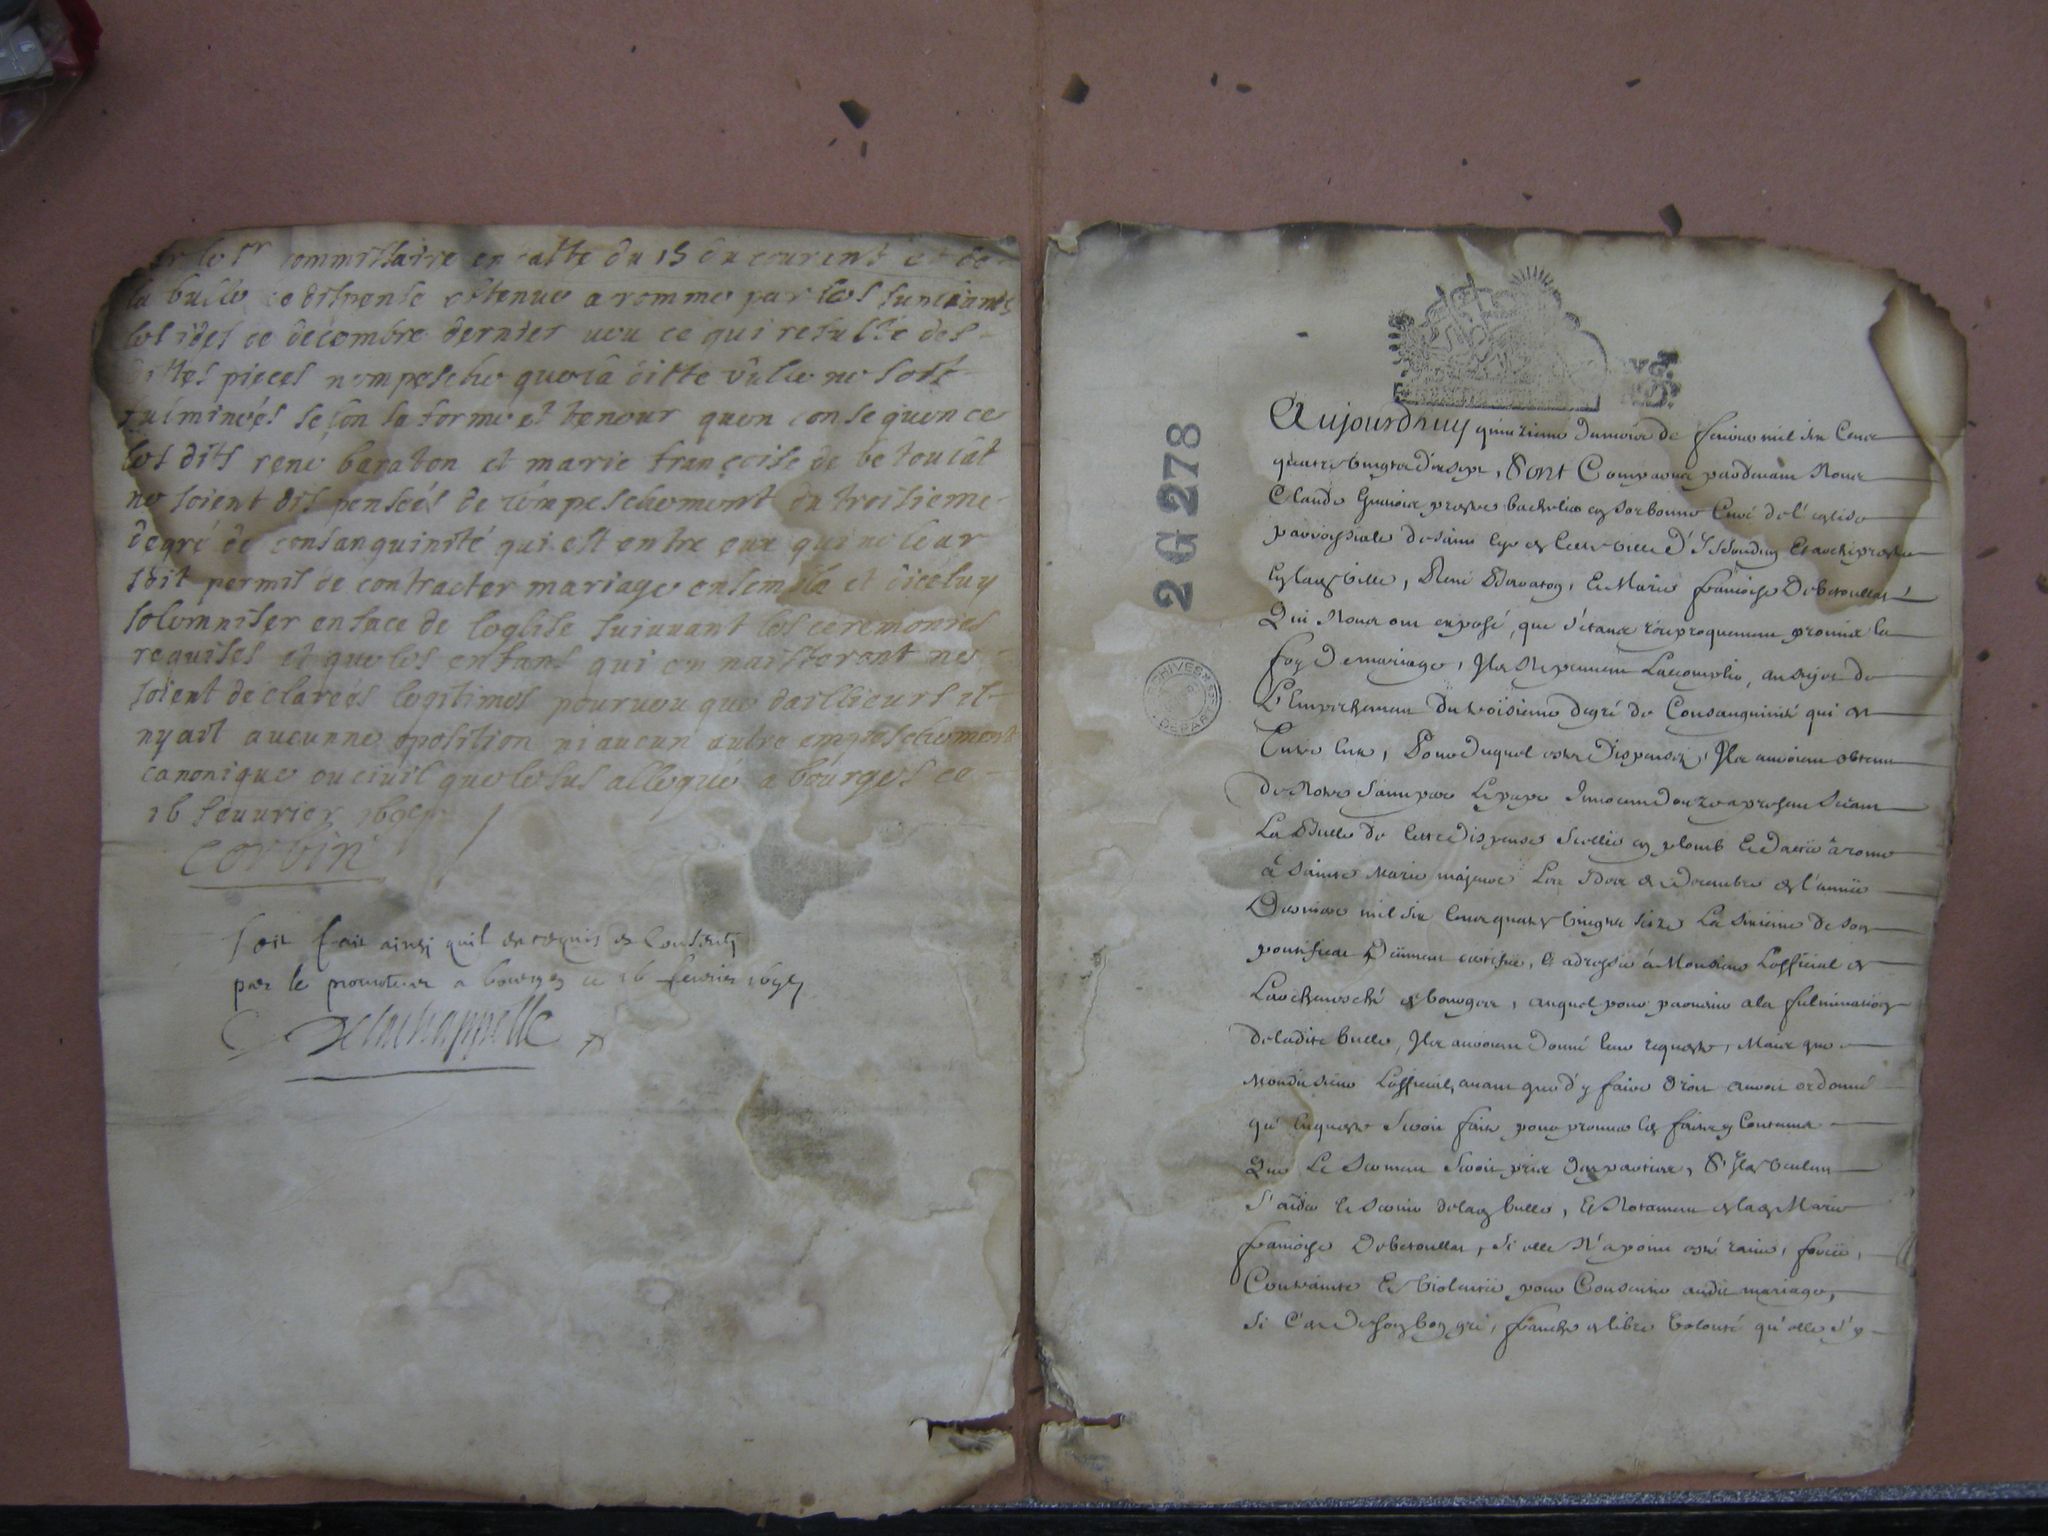 le sr commissaire en datte du 15 du courent et de
la bulle de dispense obtenue a romme par les supliants
les ides de decembre dernier veu ce qui resulte des
dittes pieces nempesche que la ditte bulle ne soit
fulminéés selon sa forme et teneur quen consequence
les dits rene baraton et marie françoise de betoulat
ne soient dispenséés de lempeschement du troisieme
degré de consanguinité qui est entre eux qui ne leur
soit permis de contracter mariage ensembla et diceluy
solemniser en face de leglise suiuuant les ceremonies
requises et que les enfans qui en naisteront ne
soient declareés legitimes pourueu que daillieurs il
nyait aucunne oposition ni aucun autre empeschement
canonique ou ciuil que le sus allegué a bourges ce
16 feuurier 1697
corbin
soit fait ainsi quil est requis et consenty
par le promoteur a bourges ce 16 feurier 1697
Delachappelle
2 G 278
ARCHIVES
DEPART
Aujourdhuy quinzieme du mois de feurier mil six Cens
quatre vingts dix sept, Sont Comparus pardeuant Nous
Claude prestre bachelier en Sorbonne Curé de l'eglise
parroissiale de Saint Cyr de cette ville d'Issoudun Et archiprestre
en lad ville, René Baraton, Et Marie françoise Debetoullat
Qui Nous ont exposé, que s'étans reciproquement promis la
foy De mariage, Ils Ne peuuent L'accomplir, au sujet de
L'Empeschement Du troisieme degré de Consanguinité qui est
Entre Eux, Pour Duquel estre Dispensez, Ils auroient obtenu
De Notre Saint pere Le pape Innocent Douze a present Seant
La Bulle de cette Dispense Scellée en plomb Et Dattée à rome
à Sainte Marie majeure Les Ides de Decembre de l'année
Derniere mil six Cens quatre vingts seize La Sixieme de son
pontificat Düement certifiée, & adressée à Monsieur L'official de
L'archeuesché de bourges, auquel pour paruenir a la fulmination
de ladite bulle, Ils auroient Donné leur requeste, Mais que
mondit Sieur L'official, auant que d'y faire droit auroit ordonné
qu'Enqueste Seroit faite pour prouuer les faits y Contenus
Que Le Serment Seroit pris Des parties, S'Ils Veulent
S'aider Et Seruir de lad bulle, Et Notament de lad Marie
françoise Debetoullat, Si elle N'a point esté rauie, forcée,
Contrainte Et Violentée pour Consentir audit mariage,
Si C'est De son bon gré, franche et libre Volonté qu'elle s'y